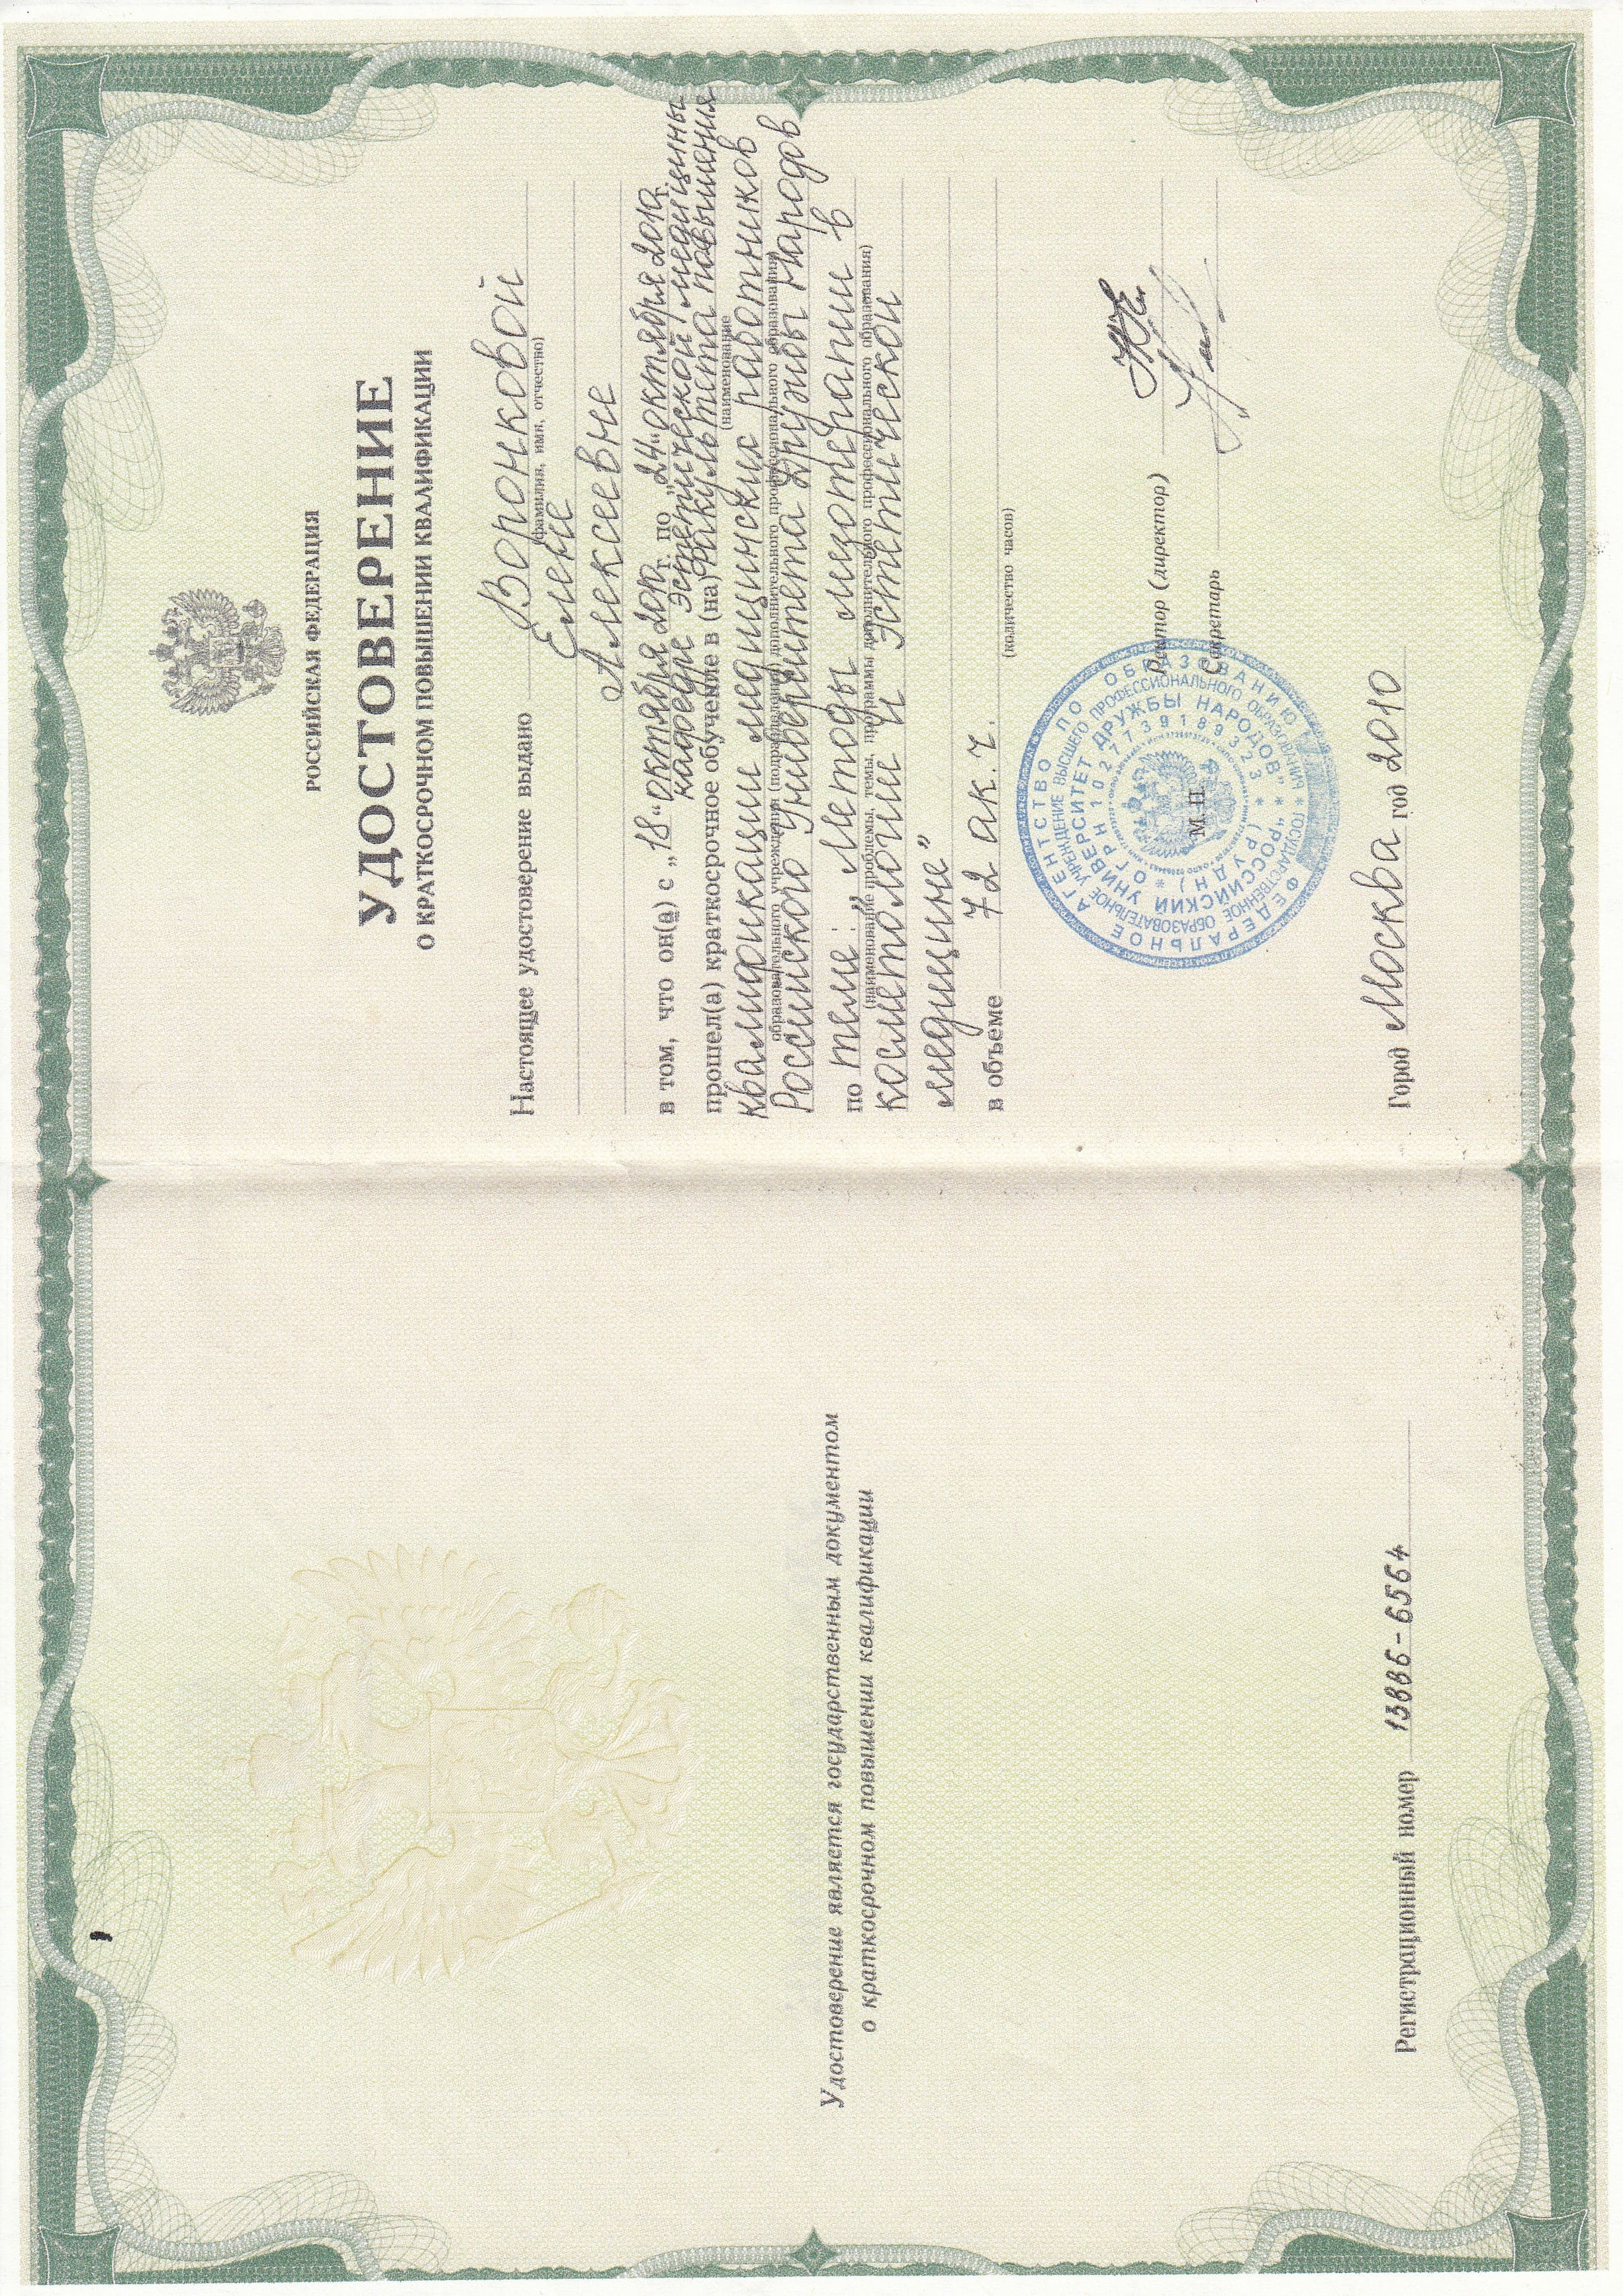 Удостоверение является государственным документом
о краткосрочном повышении квалификации
Регистрационный номер 13886-6564
РОССИЙСКАЯ ФЕДЕРАЦИЯ
УДОСТОВЕРЕНИЕ
О КРАТКОСРОЧНОМ ПОВЫШЕНИИ КВАЛИФИКАЦИИ
Настоящее удостоверение выдано Воронковой
(фамилия, имя, отчество)
Елене
Алексеевне
в том, что он(а) с „18“ октября 2010г. по „24“ октября 2010г.
кафедре Эстетической медицины
прошел(а) краткосрочное обучение в (на) Факультета повышения
(наименование
квалификации медицинских работников
образовательного учреждения (подразделения) дополнительного профессионального образования)
Российского Университета Дружбы Народов
по теме: „Методы мезотерапии в
(наименование проблемы, темы, программы дополнительного профессионального образования)
косметологии и Эстетической
медицине”
в объеме 72 ак. ч.
(количество часов)
ФЕДЕРАЛЬНОЕ АГЕНТСТВО ПО ОБРАЗОВАНИЮ
ГОСУДАРСТВЕННОЕ ОБРАЗОВАТЕЛЬНОЕ УЧРЕЖДЕНИЕ ВЫСШЕГО ПРОФЕССИОНАЛЬНОГО ОБРАЗОВАНИЯ *
"РОССИЙСКИЙ УНИВЕРСИТЕТ ДРУЖБЫ НАРОДОВ" *
(РУДН) * ОГРН 1027739189323 *
М. П.
Ректор (директор)
Секретарь
Город Москва год 2010